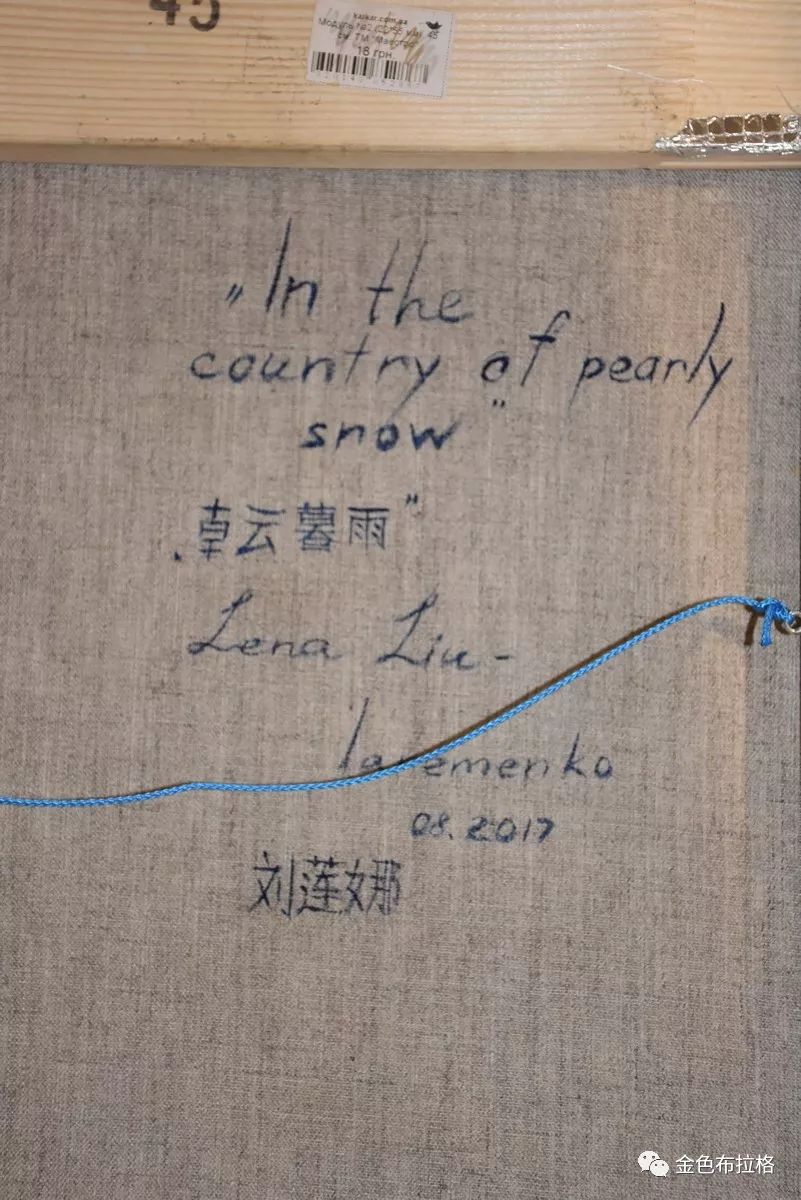 45
kaikar.com.ua
16 грн.
„In the
country of pearly
snow"
„卓云暮雨"
Lena Liu-
Iaremenko
08.2017
刘莲娜
金色布拉格